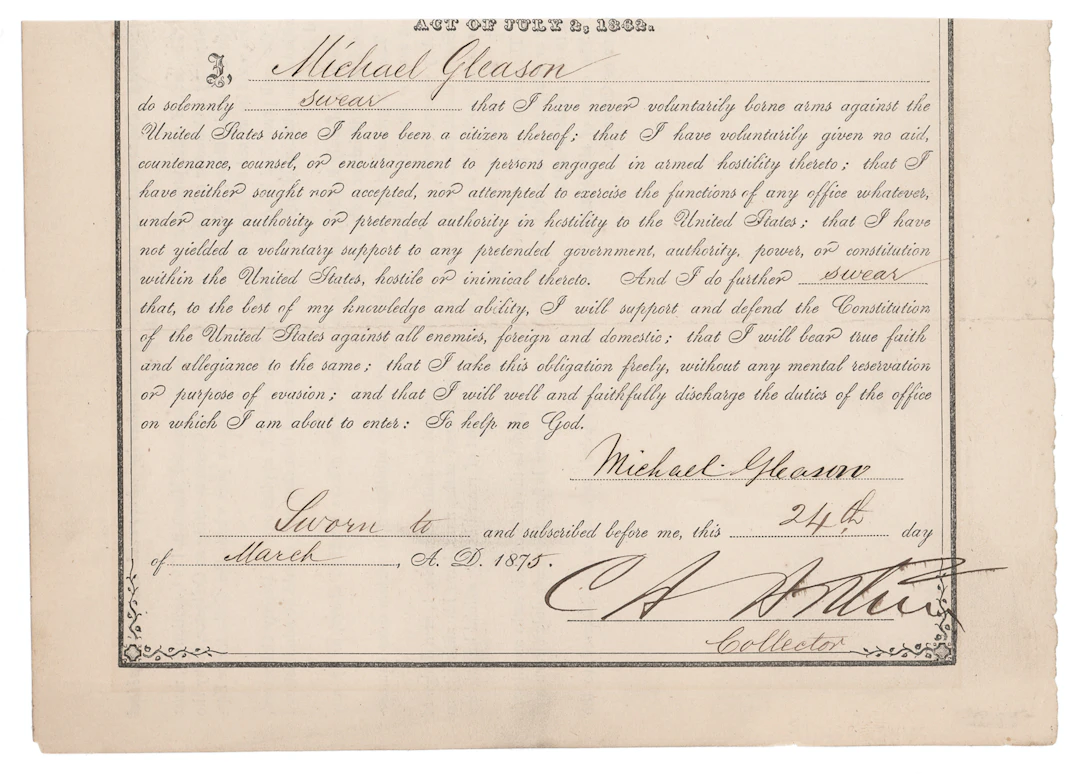 ACT OF JULY 2, 1862.
I, Michael Gleason
do solemnly swear that I have never voluntarily borne arms against the
United States since I have been a citizen thereof; that I have voluntarily given no aid,
countenance, counsel, or encouragement to persons engaged in armed hostility thereto; that I
have neither sought nor accepted, nor attempted to exercise the functions of any office whatever,
under any authority or pretended authority in hostility to the United States; that I have
not yielded a voluntary support to any pretended government, authority, power, or constitution
within the United States, hostile or inimical thereto. And I do further swear
that, to the best of my knowledge and ability, I will support and defend the Constitution
of the United States against all enemies, foreign and domestic; that I will bear true faith
and allegiance to the same; that I take this obligation freely, without any mental reservation
or purpose of evasion; and that I will well and faithfully discharge the duties of the office
on which I am about to enter: So help me God.
Michael Gleason
Sworn to and subscribed before me, this 24th day
of March, A. D. 1875.
C A Arthur
Collector